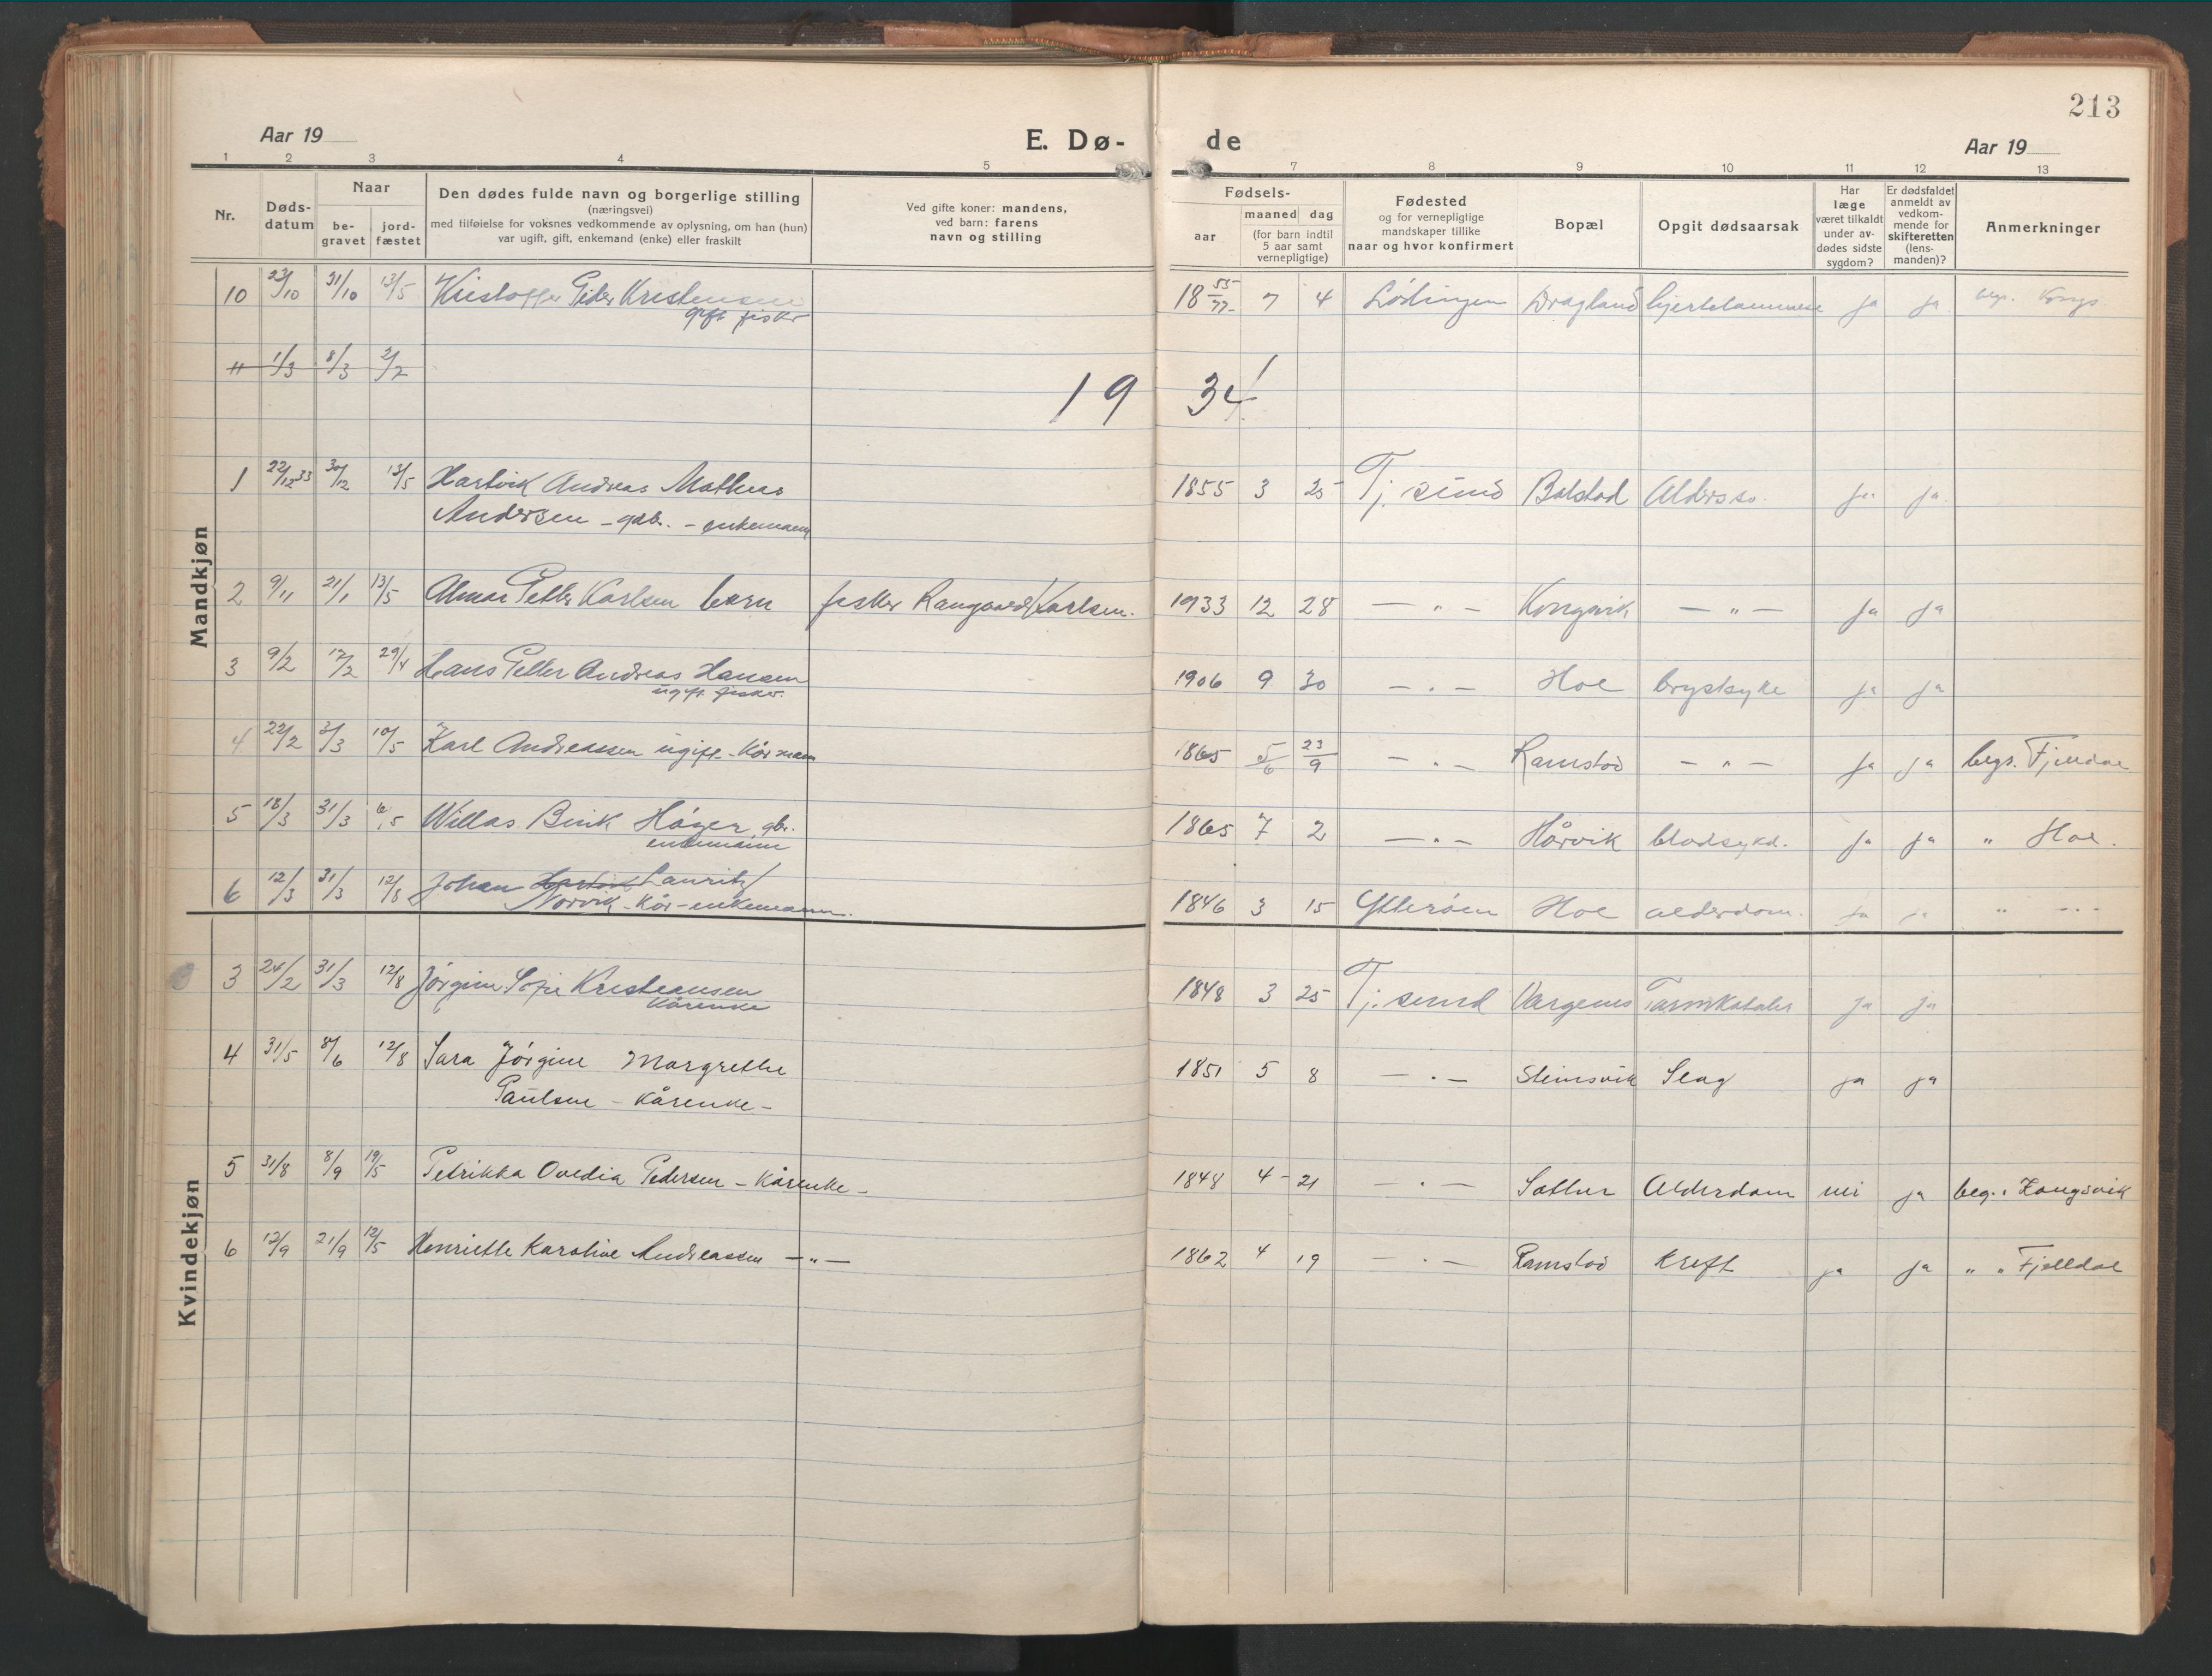 213
Aar 19
E. Dø-
de
Aar 19
1 2 3 4 5 7 8 9 10 11 12 13
Nr.
Døds-
datum
Naar
be-
gravet
jord-
fæstet
Den dødes fulde navn og borgerlige stilling
(næringsvei)
med tilføielse for voksnes vedkommende av oplysning, om han (hun)
var ugift, gift, enkemand (enke) eller fraskilt
Ved gifte koner: mandens,
ved barn: farens
navn og stilling
Fødsels-
aar
maaned dag
(for barn indtil
5 aar samt
vernepligtige)
Fødested
og for vernepligtige
mandskaper tillike
naar og hvor konfirmert
Bopæl
Opgit dødsaarsak
Har
læge
været tilkaldt
under av-
dødes sidste
sygdom?
Er dødsfaldet
anmeldt av
vedkom-
mende for
skifteretten
(lens-
manden)?
Anmerkninger
Mandkjøn
10 23/10 31/10 13/5 Kristoffer Peder Kristensen 18 55/77 7 4 Lödingen Dragland hjertelammese ja ja begr. Kongs
gift fisker
11 1/3 8/3 2/2
19 34
1 22/12 33 30/12 13/5 Hartvik Andreas Mathias 1855 3 25 Tj. sund Balstad Alderss. ja ja
Andersen - gdbr. - enkemann
2 9/11 21/1 13/5 Almar Petter Karlsen barn fisker Rangvard Karlsen. 1933 12 28 — " — Kongsvik — " — ja ja
3 9/2 17/2 29/4 Hans Petter Andreas Hansen 1906 9 30 — " — Hol brystsyke ja ja
ugift fisker.
4 22/2 3/3 10/5 Karl Andreassen ugift - Kårmann 1865 5/6 23/9 — " — Ramstad — " — ja ja begr. Fjelldal
5 18/3 31/3 6/5 Willas Berik Höger gbr. 1865 7 2 — " — Hårvik blodsykd. ja ja " Hol.
enkemann
6 12/3 31/3 12/8 Johan Lauritz 1846 3 15 Ytteröen Hol alderdom. ja ja " - - -
Norvik - Kår - enkemann.
Kvindekjøn
3 24/2 31/3 12/8 Jörgine Sofie Kristiansen 1848 3 25 Tj. sund Vargenes Tarmkatahr ja ja
Kårenke
4 31/5 8/6 12/8 Sara Jörgine Margrethe 1851 5 8 — " — Steinsvik Slag ja ja
Paulsen - Kårenke -
5 31/8 8/9 19/5 Petrikka Ovedia Pedersen - Kårenke - 1848 4 - 21 — " — Sætter Alderdom nei ja beg. i Kongsvik
6 12/9 21/9 12/5 Henriette Karoline Andreassen — " — 1862 4 19 — " — Ramstad Kreft ja ja " " Fjelldal